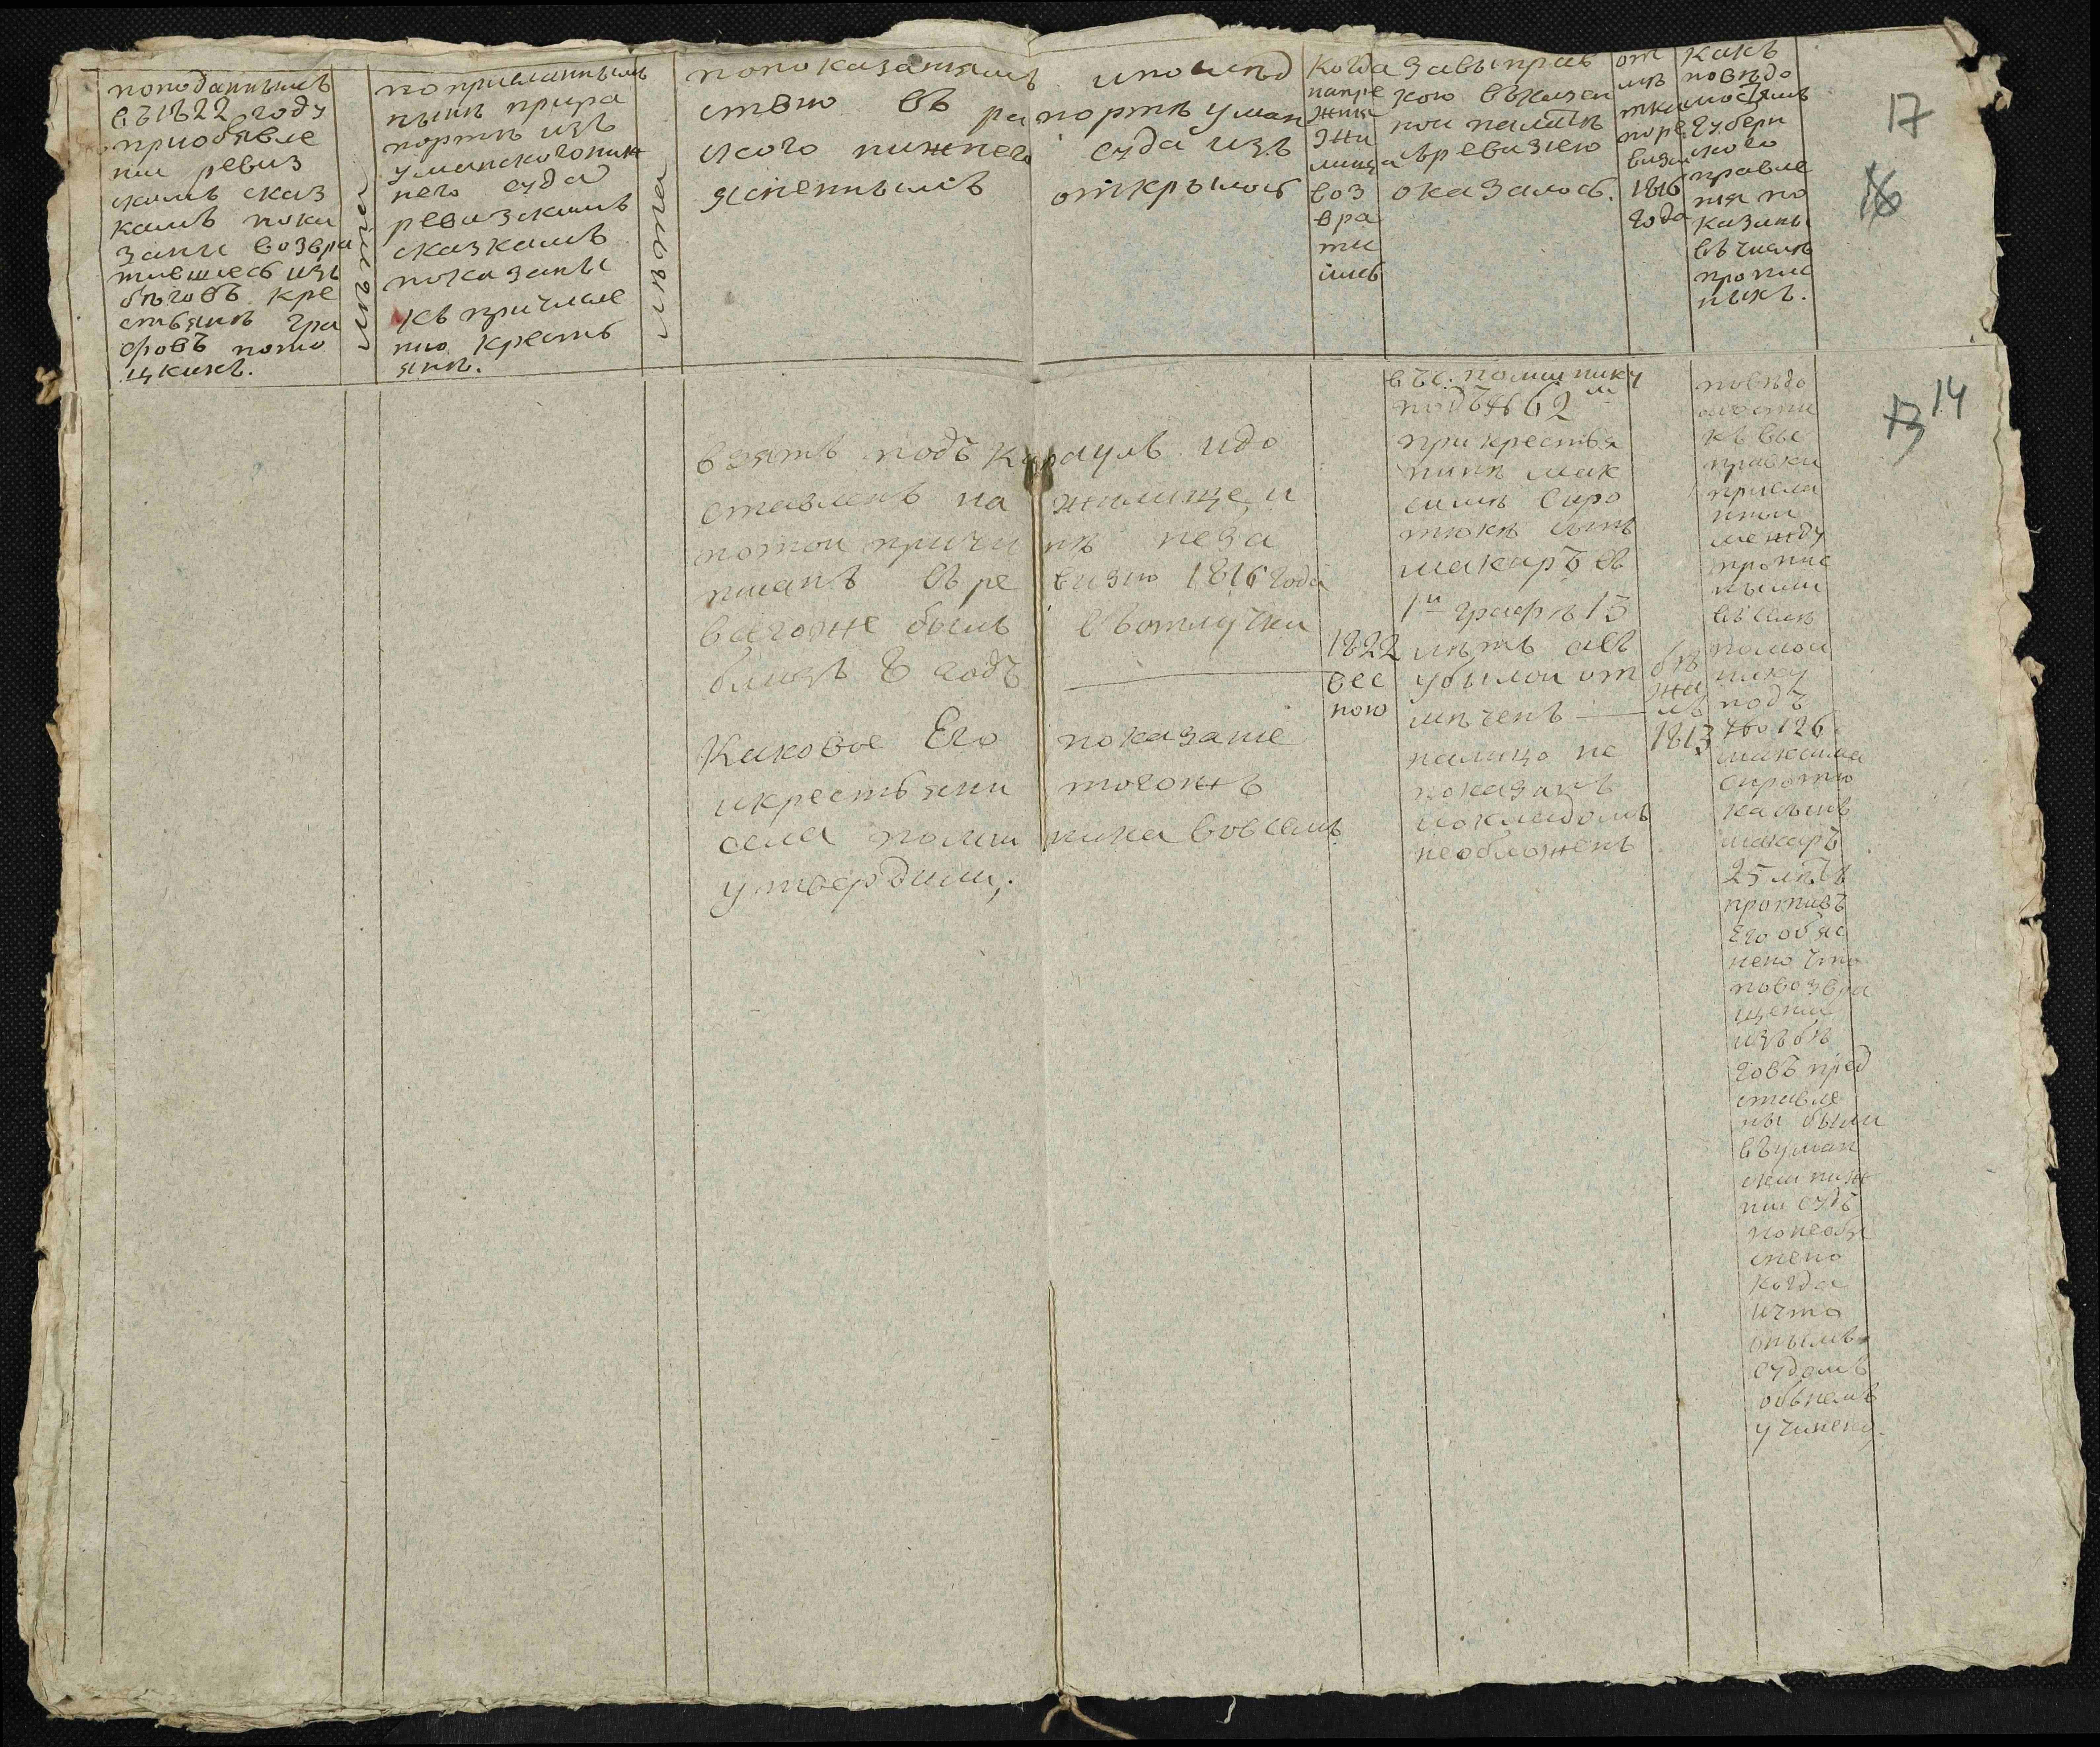 поподаннымъ
въ 1822 году
приобявле
нии ревиз
скимъ сказ
камъ пока
заны возвра
тившиесь изъ
бѣговъ кре
стьянъ гра
фовъ пото
цкихъ.
лѣта
поприсланнымъ
ныне прира
портѣ изъ
уманского ниж
него суда
ревизскимъ
сказкамъ
показаны
къ причисле
нию кресть
янѣ.
лѣта
попоказаниямъ ипослѣд
ствию въ рапортѣ уман
ского нижнего суда изъ
ясненнымъ открылось
когда
напре
жния
жи
лища
воз
вра
ти
лись
завыправ
кою въказен
ной палатѣ
съревизиею
оказалось.
от
мѣ
тка
поре
визии
1816
года
какъ
повѣдо
мостямъ
Губерн
ского
правле
ния по
казаны
въчислѣ
пропис
ныхъ.
17
16
13 14
взятъ подъ караулъ идо
ставленъ на жилище и
потой причи нѣ неза
писанъ въре визию 1816 года
всегоже былъ вьотлучки
близъ 8 годъ
Каковое Его показание
икрестьяни тогожъ
села полни ника вовсемъ
утвердили;
1822
вес
ною
въс. полнинику
подъ № 62 м
при крестья
нинѣ мак
симѣ сиро
тюкѣ сынъ
макаръ въ
1й графѣ 13
лѣтъ авъ
убылой от
мѣченъ
налицо не
показанъ
иокладомъ
необложенъ
бѣ
жа
лъ
1813
повѣдо
мости
къ вы
правки
присла
нной
между
пропис
ными
въселѣ
полной
нику
подъ
№ 126
максима
сиротю
касынъ
макаръ
25 лѣтъ
противъ
Его объяс
нено что
повозвра
щении
изъ бѣ
говъ пред
ставле
ны были
въуман
ский ниж
ний судъ
нонеобъя
снено
когда
ичто
онымъ
судомъ
обънемъ
учинено.